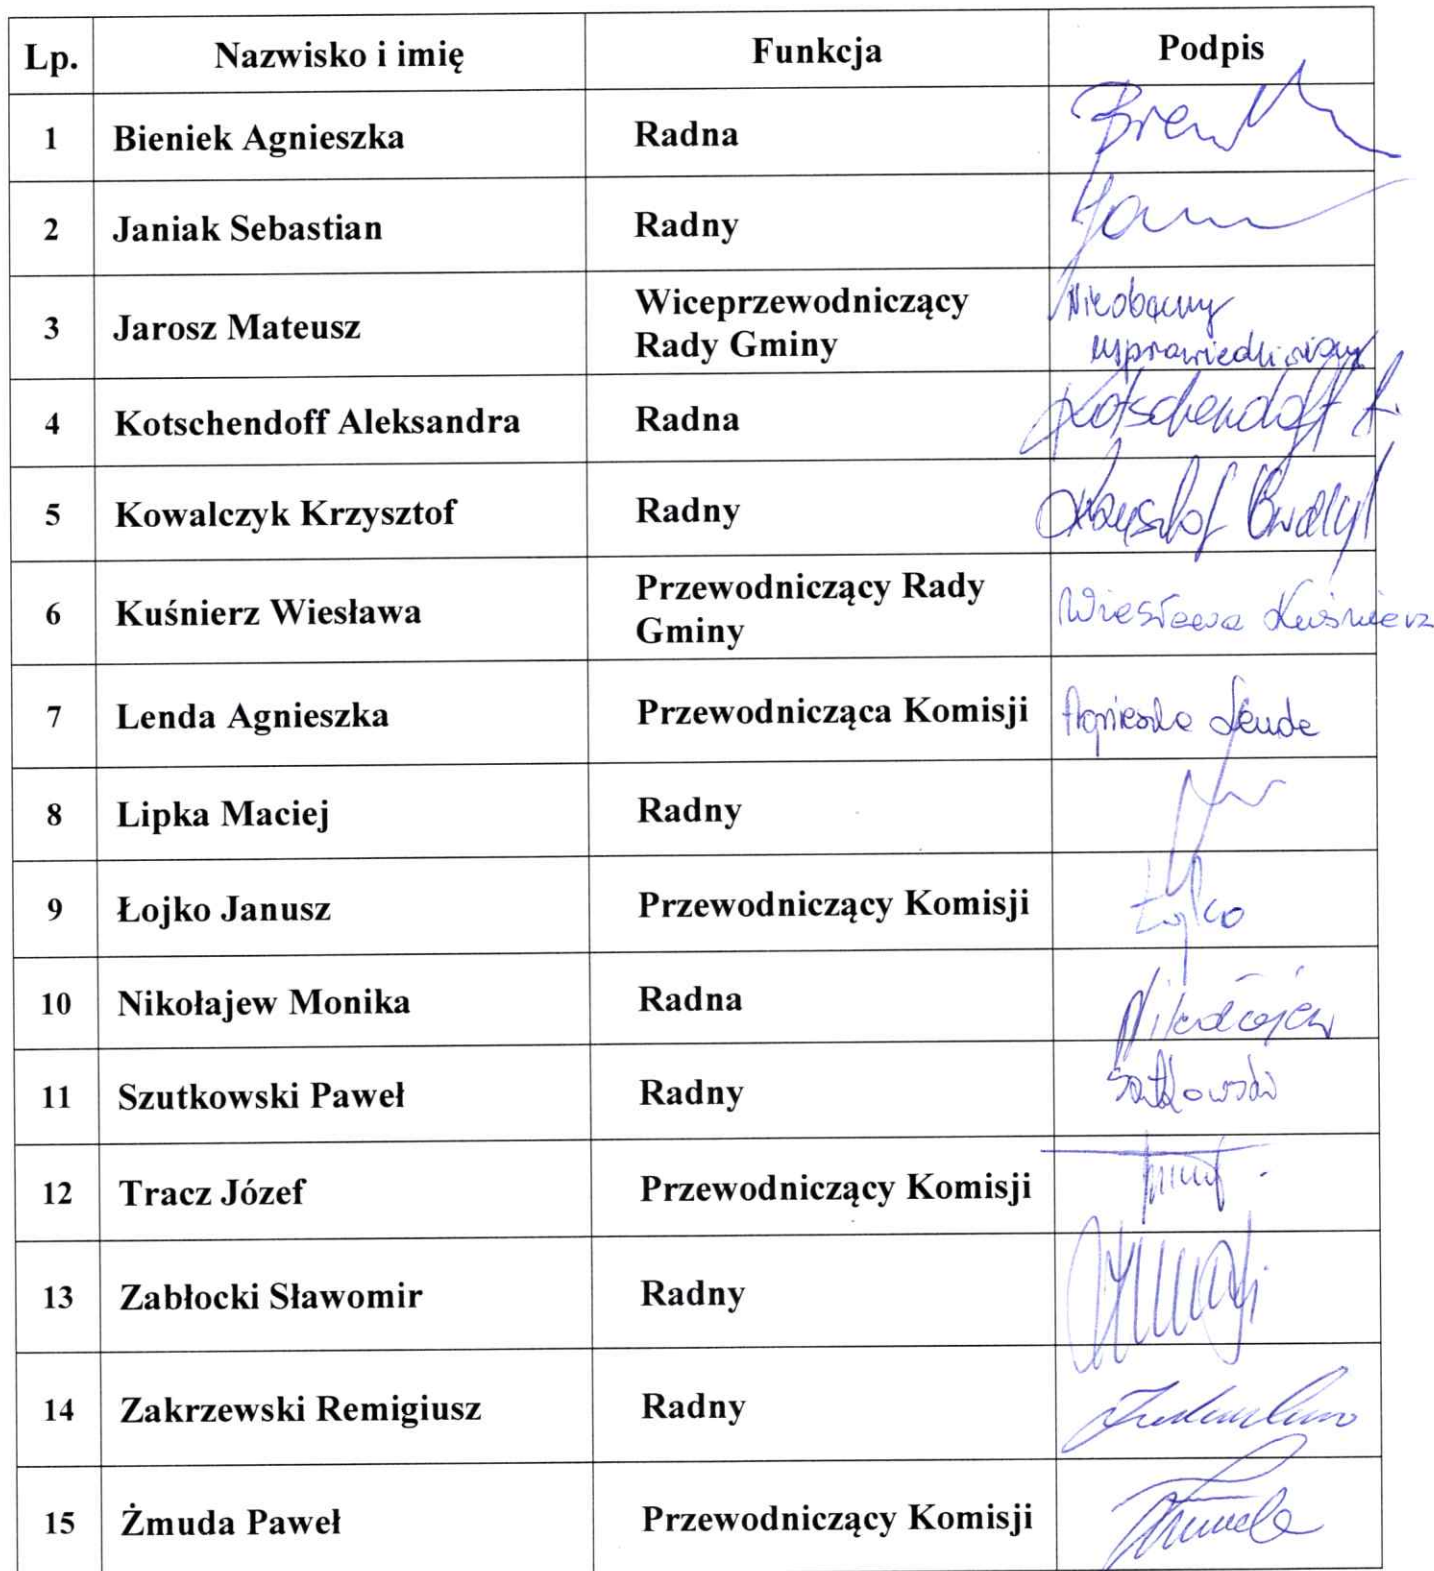 Lp. Nazwisko i imię Funkcja Podpis
1 Bieniek Agnieszka Radna
2 Janiak Sebastian Radny
3 Jarosz Mateusz Wiceprzewodniczący Nieobecny
Rady Gminy usprawiedliwiony
4 Kotschendoff Aleksandra Radna Kotschendoff A.
5 Kowalczyk Krzysztof Radny Krzysztof
6 Kuśnierz Wiesława Przewodniczący Rady Wiesława Kuśnierz
Gminy
7 Lenda Agnieszka Przewodnicząca Komisji Agnieszka Lenda
8 Lipka Maciej Radny
9 Łojko Janusz Przewodniczący Komisji Łojko
10 Nikołajew Monika Radna Nikołajew
11 Szutkowski Paweł Radny Szutkowski
12 Tracz Józef Przewodniczący Komisji
13 Zabłocki Sławomir Radny
14 Zakrzewski Remigiusz Radny
15 Żmuda Paweł Przewodniczący Komisji Żmuda